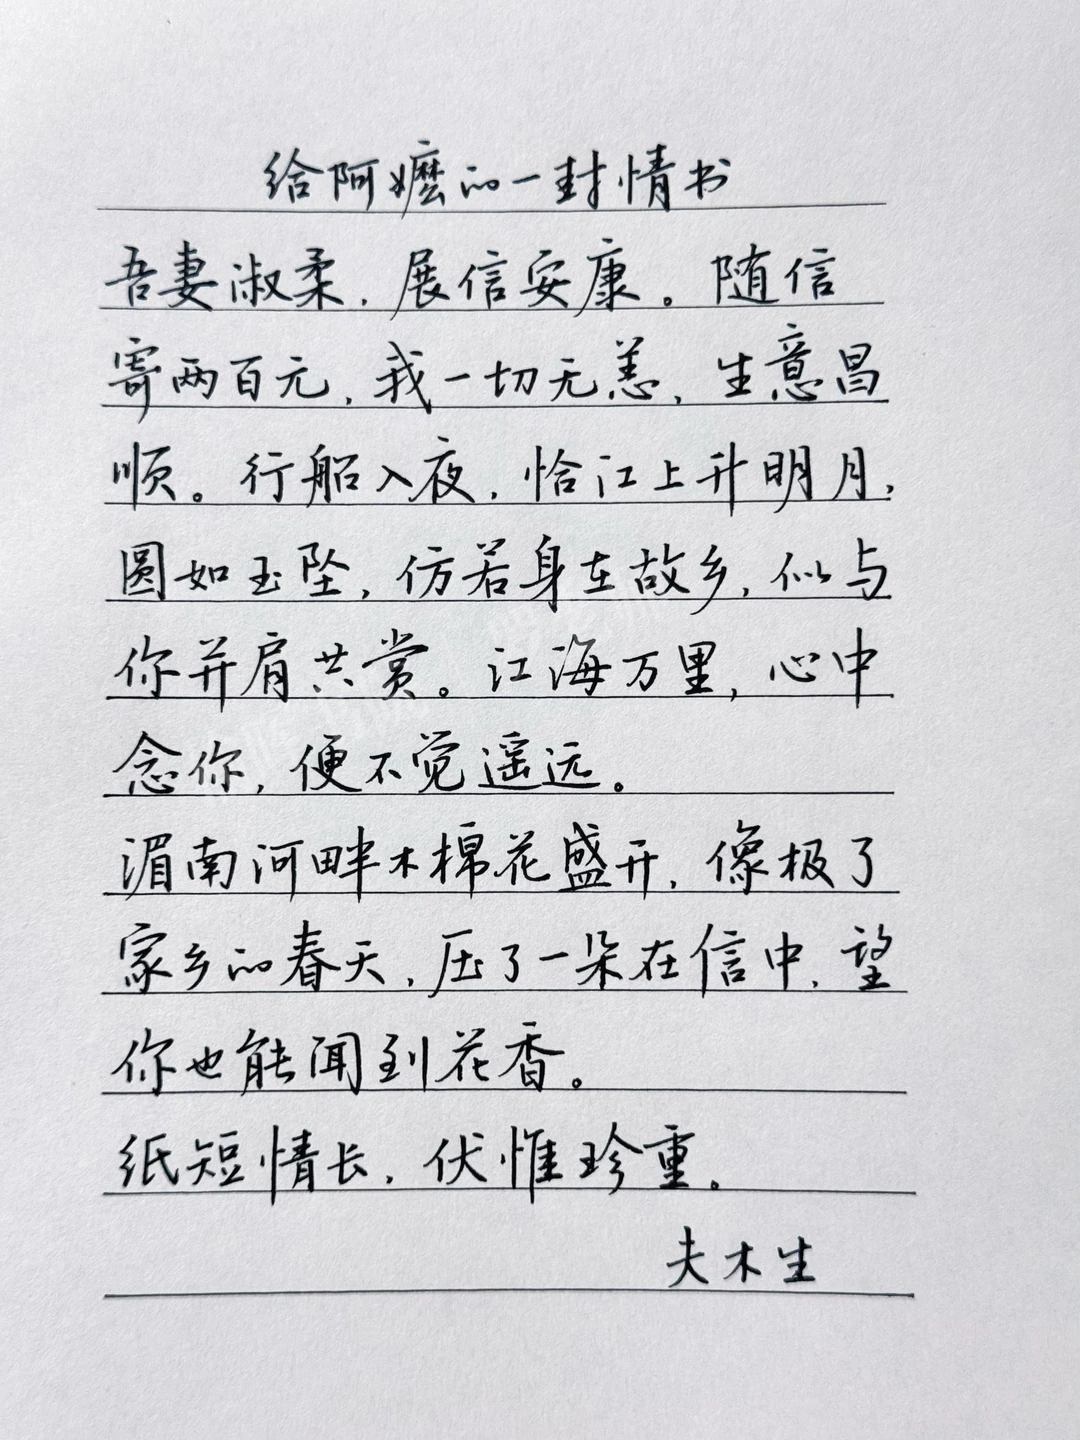 给阿嬷的一封情书
吾妻淑柔，展信安康。随信
寄两百元，我一切无恙，生意昌
顺。行船入夜，恰江上升明月，
圆如玉坠，仿若身在故乡，似与
你并肩共赏。江海万里，心中
念你，便不觉遥远。
湄南河畔木棉花盛开，像极了
家乡的春天，压了一朵在信中，望
你也能闻到花香。
纸短情长，伏惟珍重。
夫木生